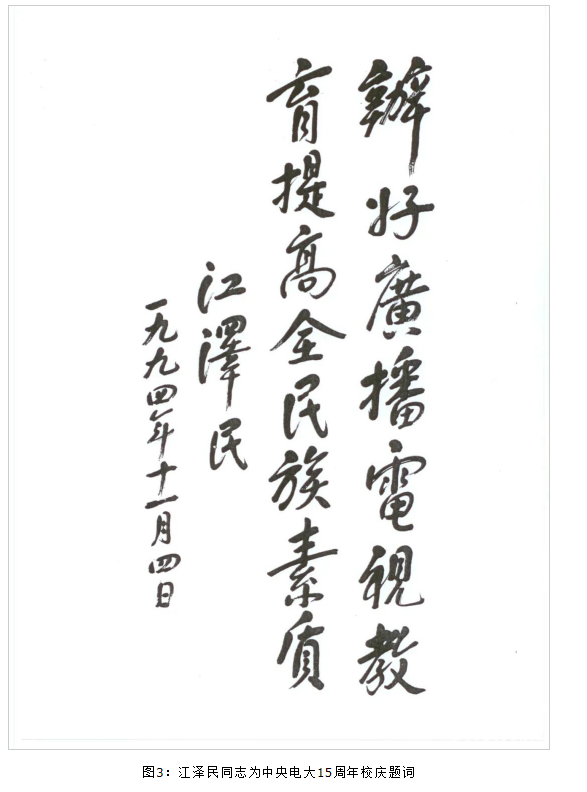 辦好廣播電視教
育提高全民族素质
江澤民
一九九四年十一月四日
图3：江泽民同志为中央电大15周年校庆题词